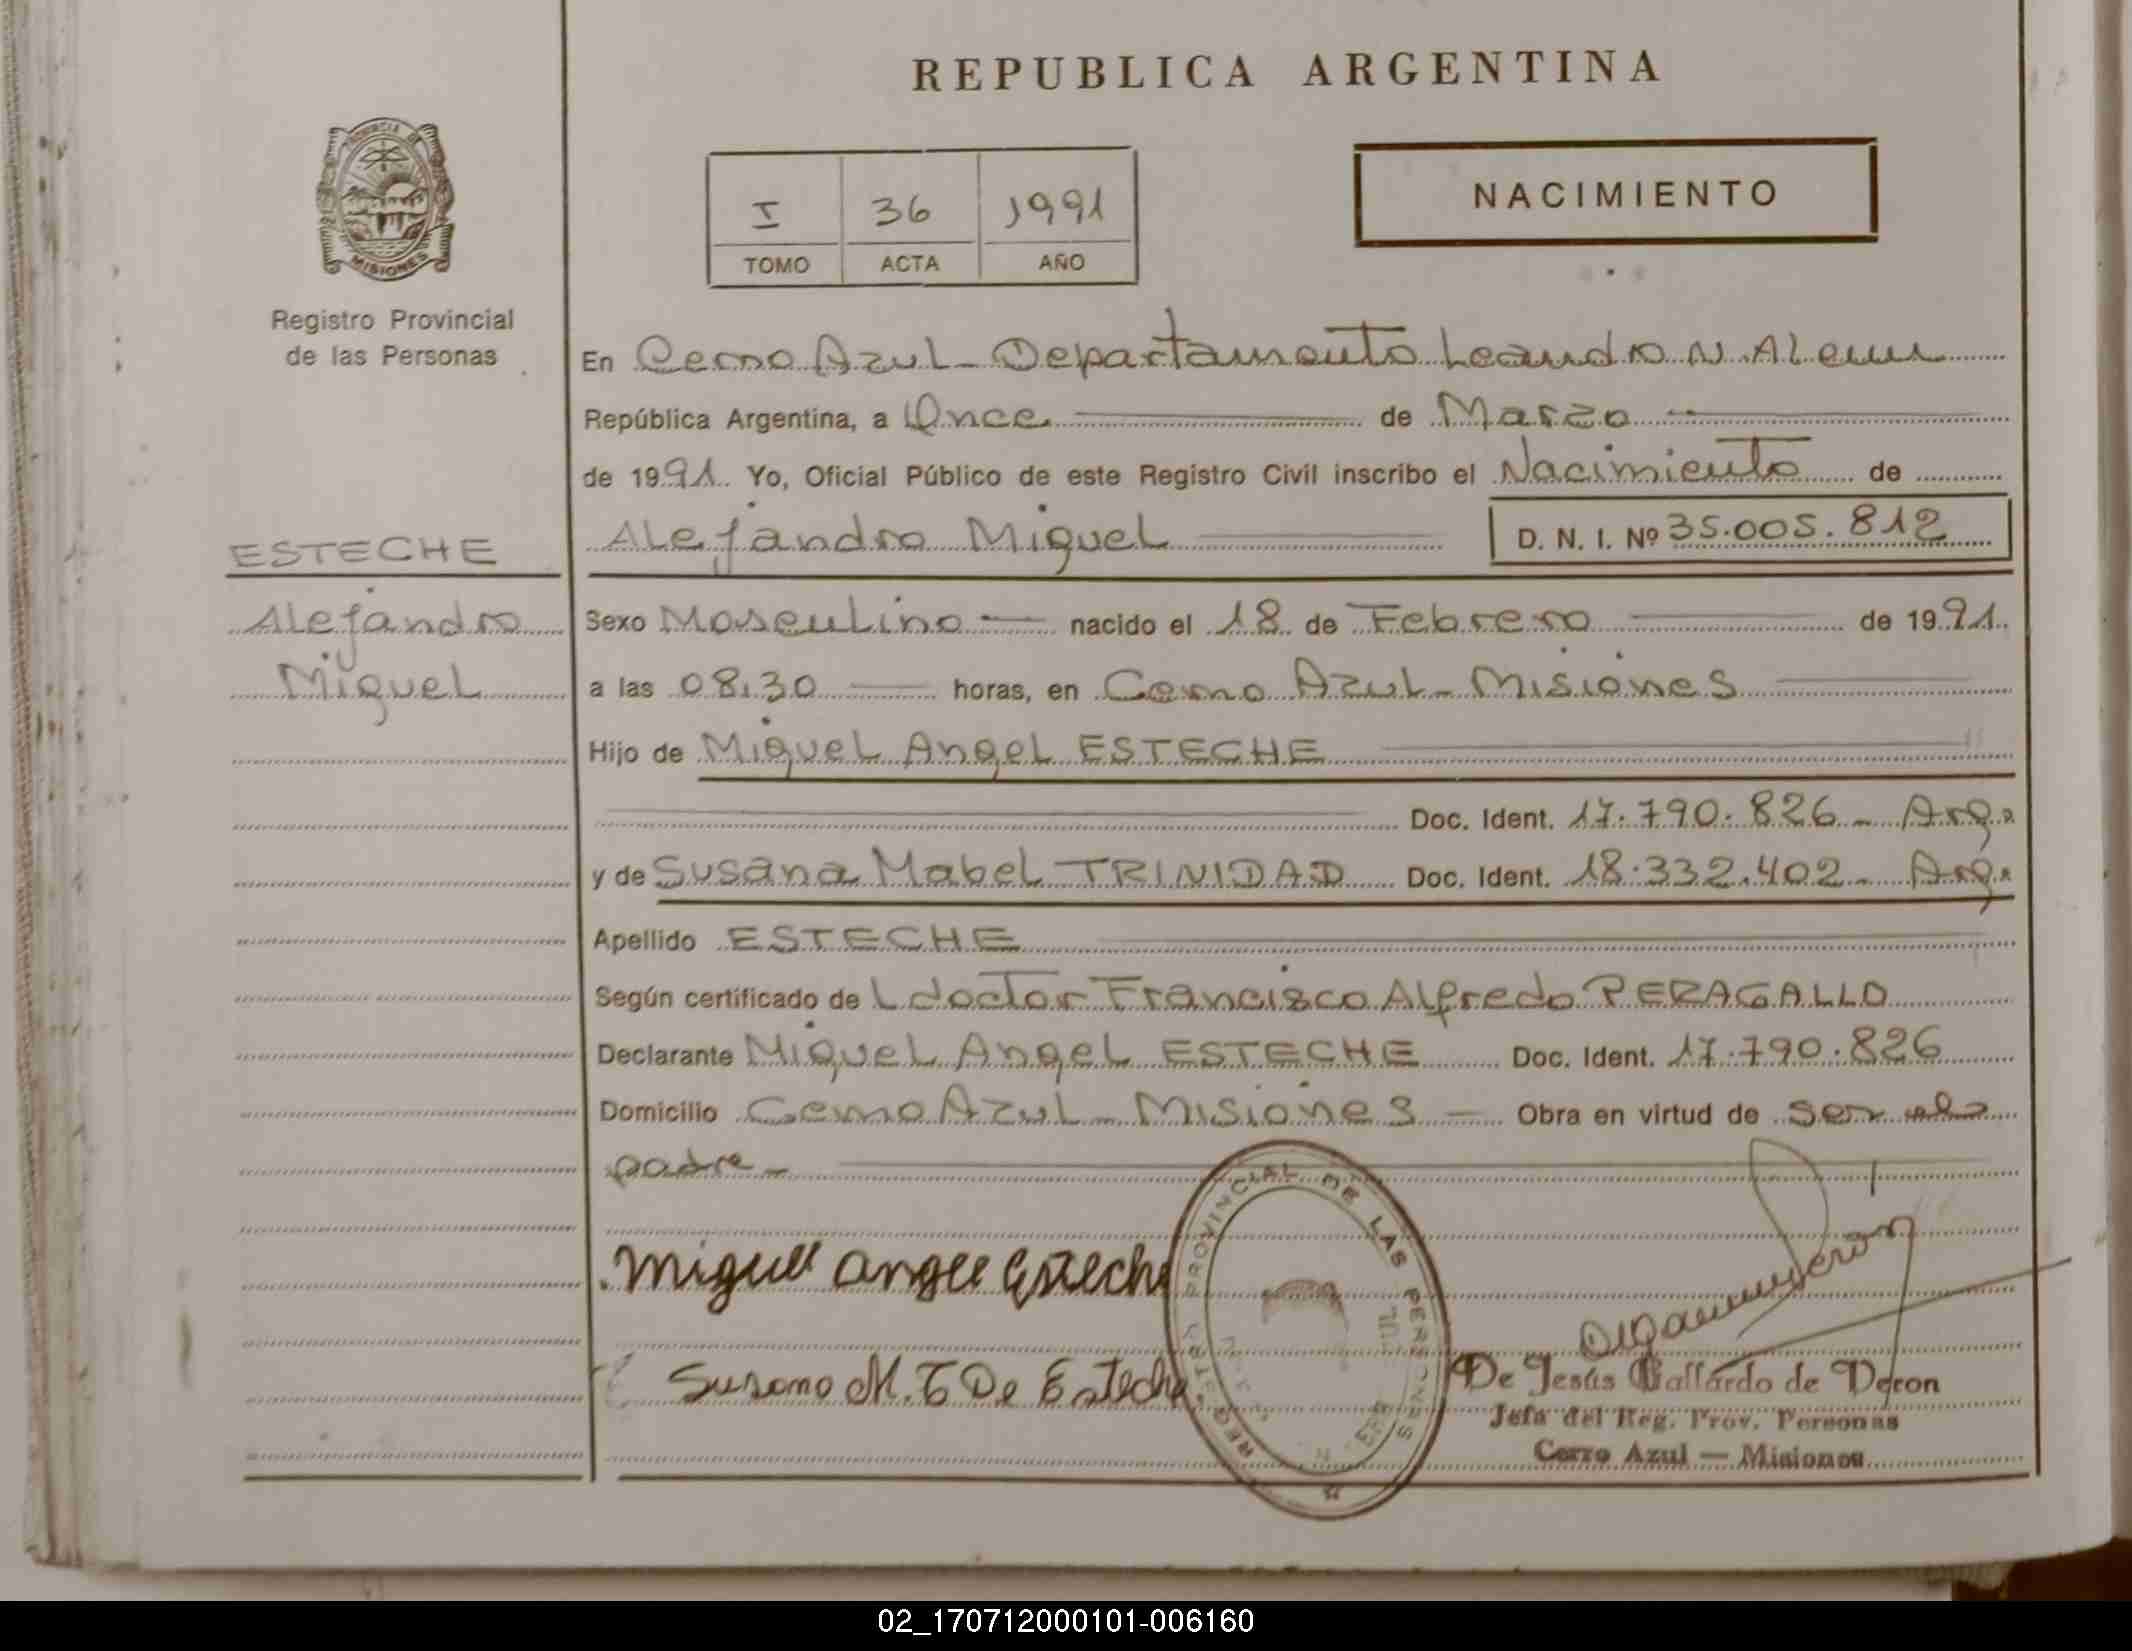 REPUBLICA ARGENTINA
PROVINCIA DE
MISIONES
Registro Provincial
de las Personas
I 36 1991
TOMO ACTA AÑO
NACIMIENTO
En Cerro Azul - Departamento Leandro N. Alem
República Argentina, a Once de Marzo
de 1991. Yo, Oficial Público de este Registro Civil inscribo el Nacimiento de
Alejandro Miguel D. N. I. Nº 35.005.812
ESTECHE
Alejandro
Miguel
Sexo Masculino nacido el 18 de Febrero de 1991.
a las 08,30 horas, en Cerro Azul - Misiones
Hijo de Miguel Angel ESTECHE
Doc. Ident. 17.790.826 - Arg.
y de Susana Mabel TRINIDAD Doc. Ident. 18.332.402 - Arg.
Apellido ESTECHE
Según certificado de L doctor Francisco Alfredo PERAGALLO
Declarante Miguel Angel ESTECHE Doc. Ident. 17.790.826
Domicilio Cerro Azul - Misiones - Obra en virtud de ser
padre -
Miguel Angel Esteche
Susana M. T De Esteche
REGISTRO PROVINCIAL DE LAS PERSONAS
De Jesús Gallardo de Deron
Jefa del Reg. Prov. Personas
Cerro Azul — Misiones
02_170712000101-006160